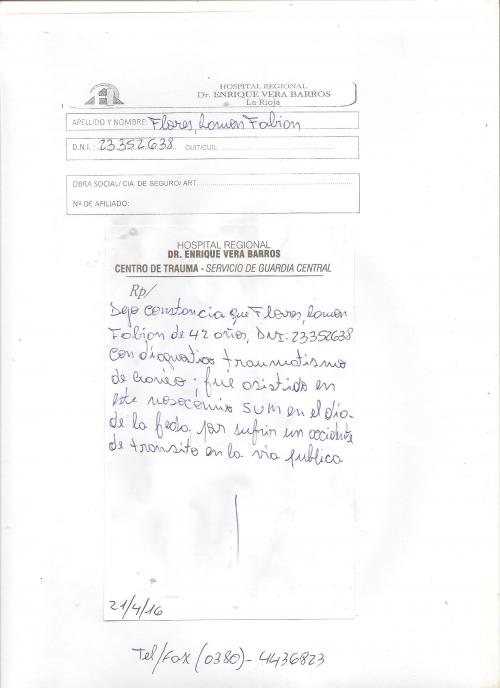 HOSPITAL REGIONAL
Dr. ENRIQUE VERA BARROS
La Rioja
APELLIDO Y NOMBRE: Flores, Ramon Fabian
D.N.I.: 23352638 CUIT/CUIL:
OBRA SOCIAL/ CIA. DE SEGURO/ ART
Nº DE AFILIADO:
HOSPITAL REGIONAL
DR. ENRIQUE VERA BARROS
CENTRO DE TRAUMA - SERVICIO DE GUARDIA CENTRAL
Rp/
Dejo constancia que Flores, Ramon
Fabian de 42 años, DNI: 23352638
con diagnostico traumatismo
de craneo; fué asistido en
este nosocomio SUM en el dia
de la fecha por sufrir un accidente
de transito en la via publica
21/4/16
Tel/Fax (0380)-4436823